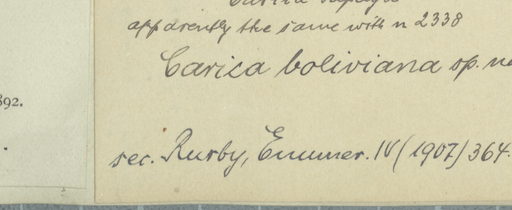 Carica
apparently the same with n 2338
Carica boliviana sp.
892.
sec. Rusby, Enumer. IV (1907) 364.